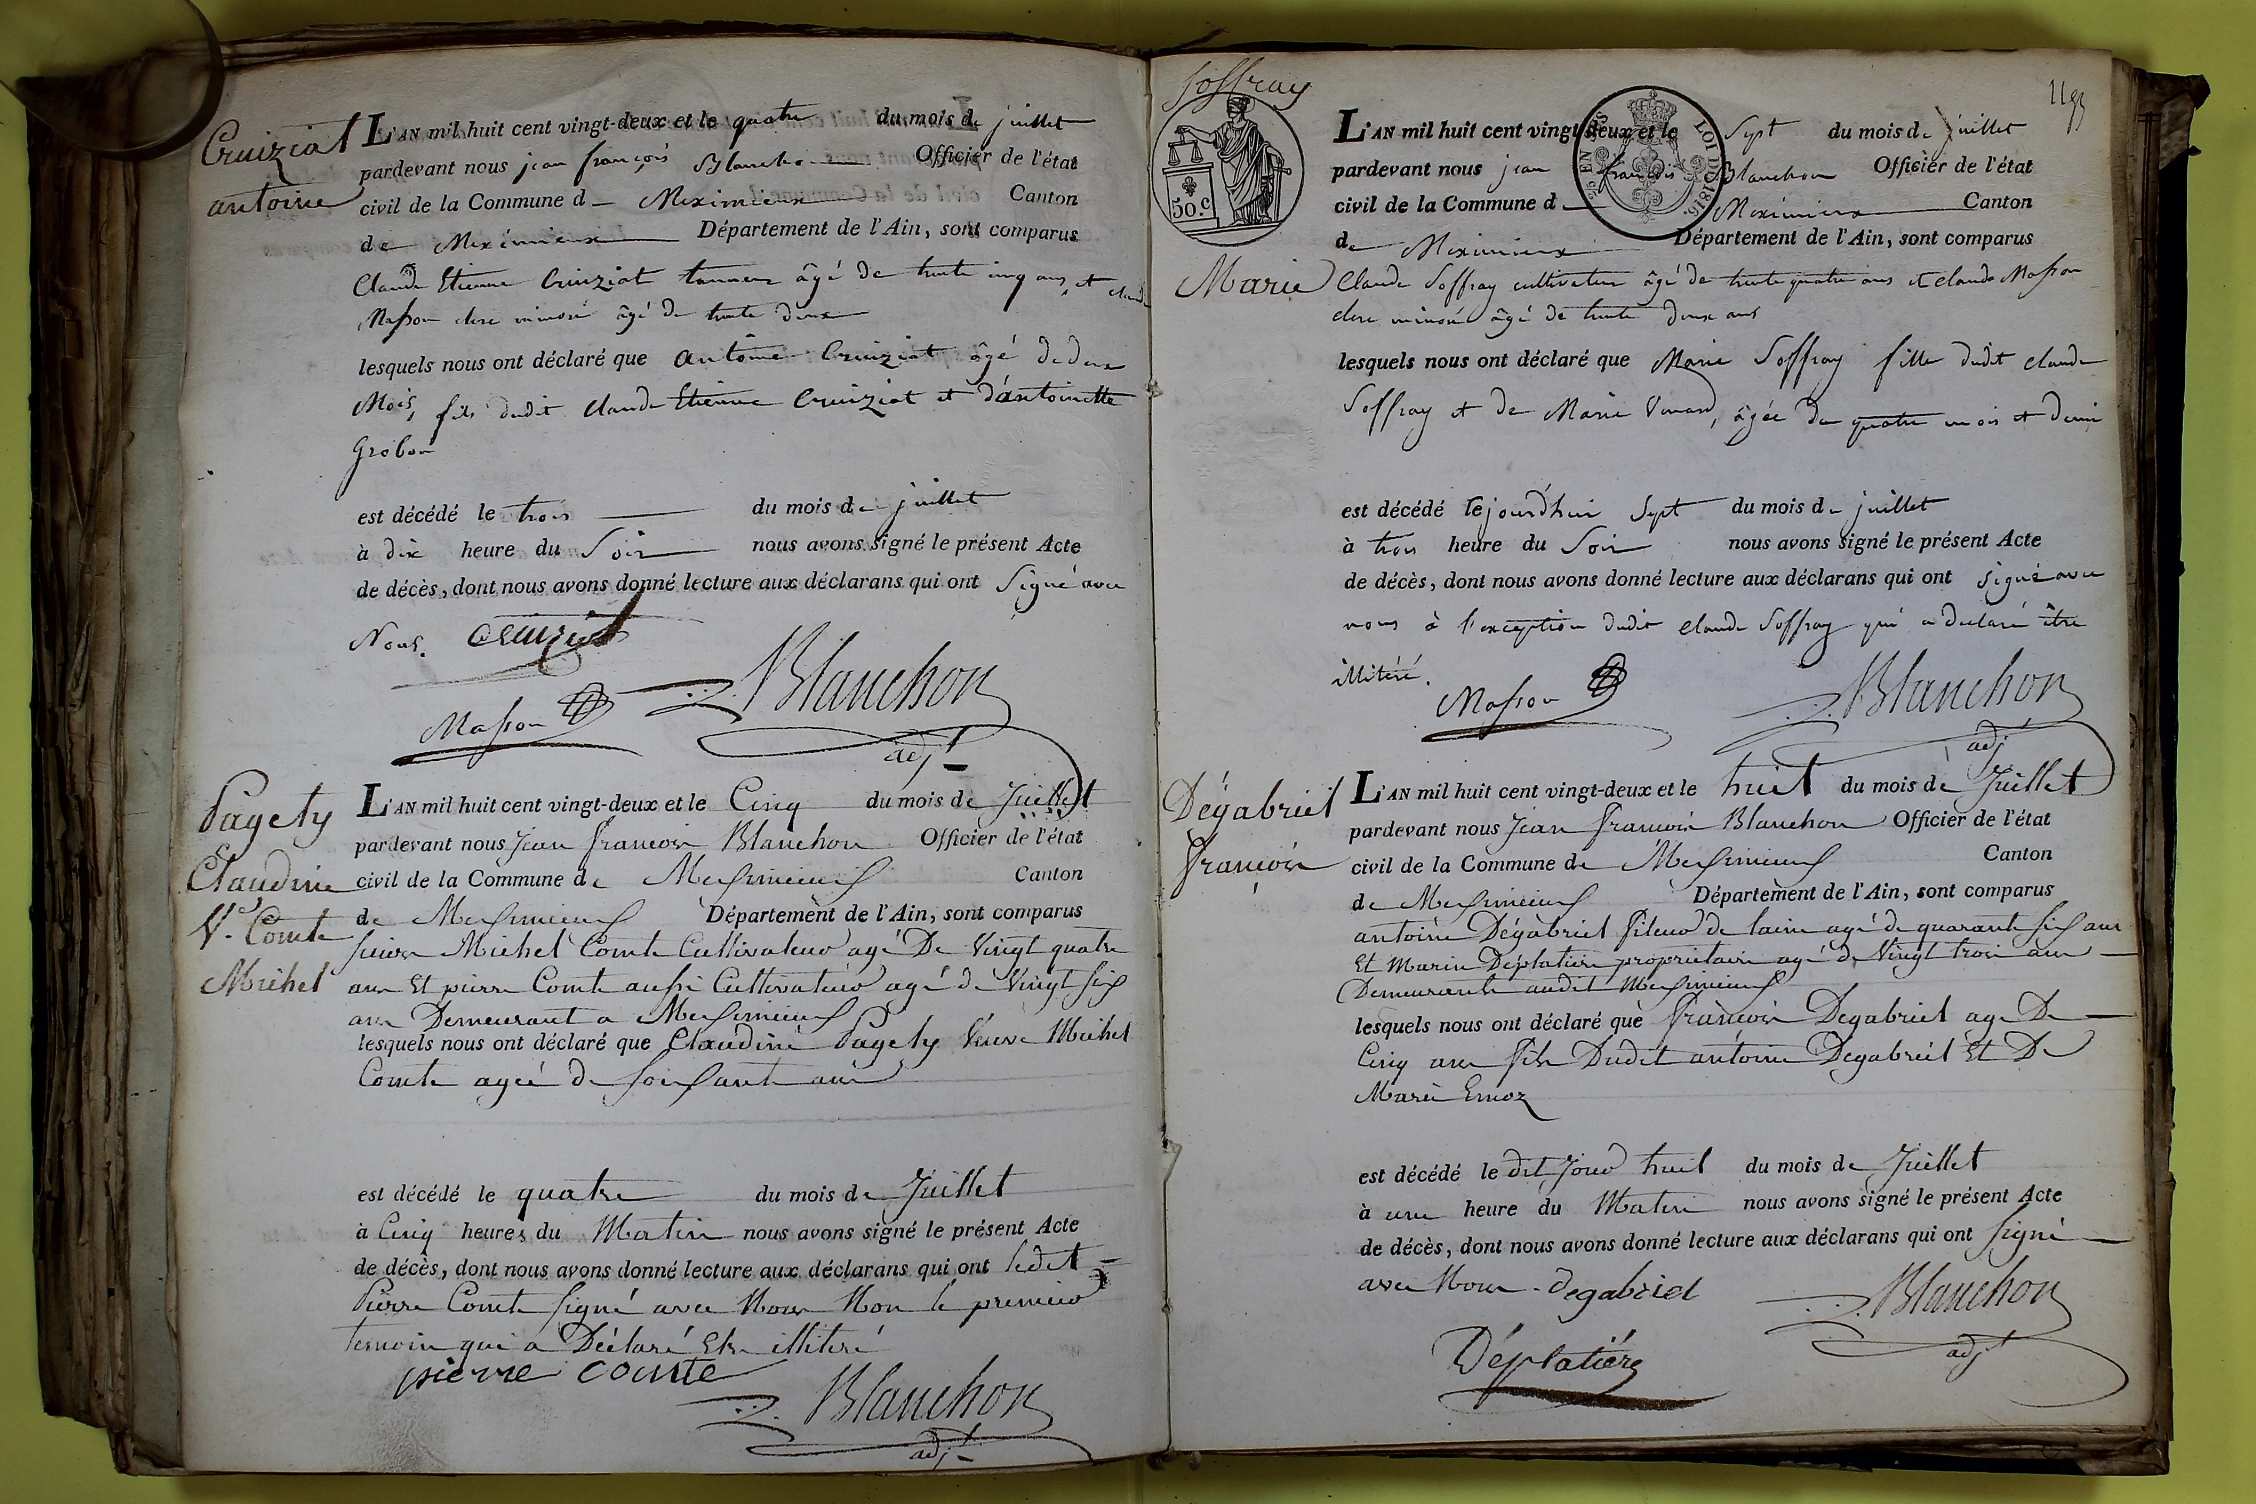 Cruiziat
antoine
L'AN mil huit cent vingt-deux et le quatre du mois de juillet
pardevant nous jean françois Blanchon Officier de l'état
civil de la Commune d Meximieux Canton
de Meximieux Département de l'Ain, sont comparus
Claude Etienne Cruiziat tanneur âgé de trente cinq ans, et claude
Masson clerc minoré âgé de trente deux
lesquels nous ont déclaré que antoine Cruiziat âgé de deux
Mois, fils dudit Claude Etienne Cruiziat et d'antoinette
Grobon
est décédé le trois du mois de juillet
à dix heure du Soir nous avons signé le présent Acte
de décès, dont nous avons donné lecture aux déclarans qui ont Signé avec
Nous. Cruiziat
Masson Blanchon
adjt
Pagety
Claudine
Ve. Comte
Michel
L'AN mil huit cent vingt-deux et le Cinq du mois de Juillet
pardevant nous Jean françois Blanchon Officier de l'état
civil de la Commune de Meximieux Canton
de Meximieux Département de l'Ain, sont comparus
Michel Comte Cultivateur agé De Vingt quatre
ans Et pierre Comte aussi Cultivateur agé de Vingt six
ans Demeurant a Meximieux
lesquels nous ont déclaré que Claudine Pagety Veuve Michel
Comte agée de soixante ans
est décédé le quatre du mois de Juillet
à Cinq heures du Matin nous avons signé le présent Acte
de décès, dont nous avons donné lecture aux déclarans qui ont ledit
Pierre Comte signé avec Nous Non le premier
temoin qui a Déclaré Etre illiteré
pierre comte Blanchon
adjt
Soffray
Marie
50.c
EN SUS
LOI DE 1816.
L'AN mil huit cent vingt-deux et le Sept du mois de juillet
pardevant nous jean françois Blanchon Officier de l'état
civil de la Commune d Meximieux Canton
de Meximieux Département de l'Ain, sont comparus
Claude Soffray cultivateur âgé de trente quatre ans et claude Masson
clerc minoré âgé de trente deux ans
lesquels nous ont déclaré que Marie Soffray fille dudit claude
Soffray et de Marie , âgée de quatre mois et demi
est décédé le jourd'hui Sept du mois de juillet
à trois heure du Soir nous avons signé le présent Acte
de décès, dont nous avons donné lecture aux déclarans qui ont signé avec
nous à l'exception dudit claude Soffray qui a déclaré être
illitéré.
Masson Blanchon
adjt
Dégabriel
françois
L'AN mil huit cent vingt-deux et le huit du mois de Juillet
pardevant nous Jean françois Blanchon Officier de l'état
civil de la Commune de Meximieux Canton
de Meximieux Département de l'Ain, sont comparus
antoine Dégabriel fileur de laine agé de quarante six ans
Et Marin Déplatière propriétaire agé de Vingt trois ans
Demeurants audit Meximieux
lesquels nous ont déclaré que françois Degabriel agé De
Cinq ans fils Dudit antoine Dégabriel Et De
Marie Emoz
est décédé le dit Jour huit du mois de Juillet
à une heure du Matin nous avons signé le présent Acte
de décès, dont nous avons donné lecture aux déclarans qui ont signé
avec Nous. Degabriel
Blanchon
Déplatière adjt